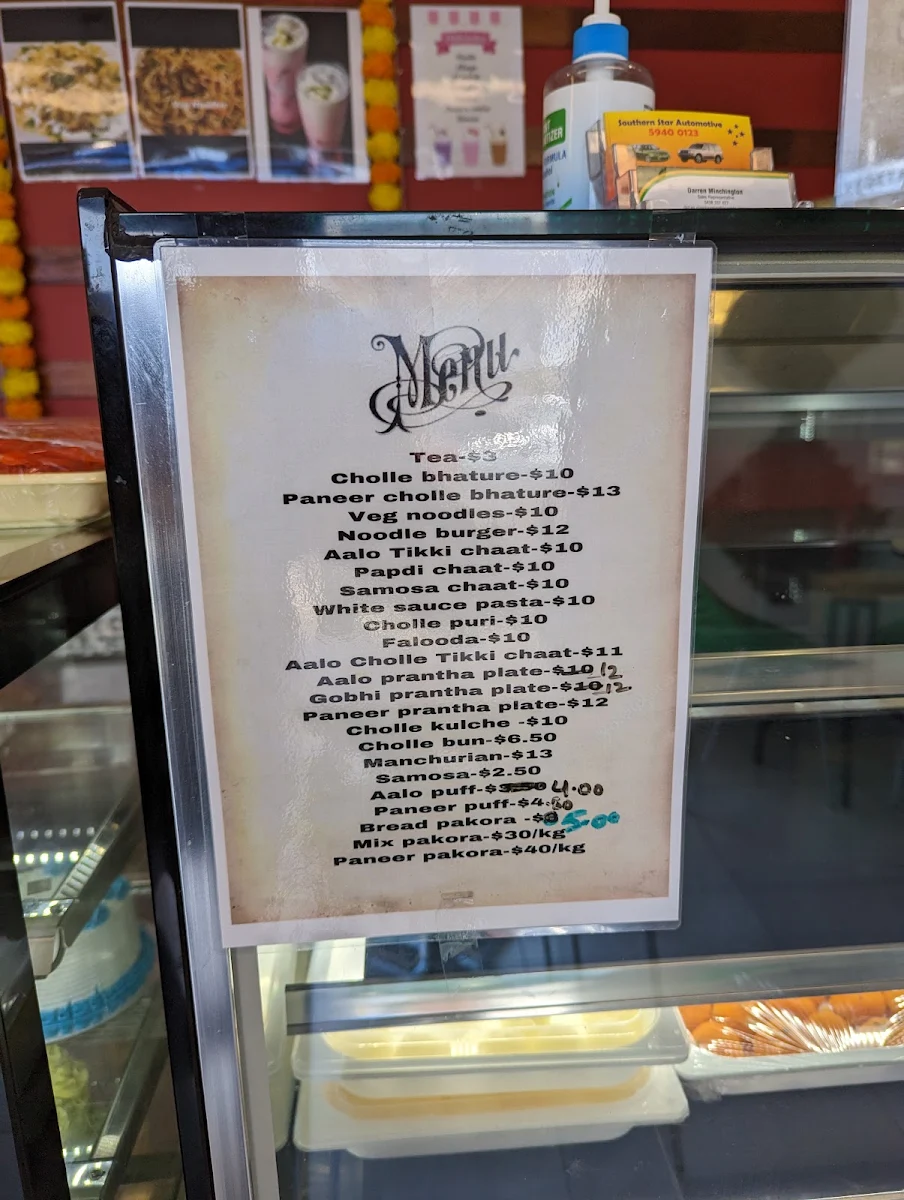 Southern Star Automotive
5940 0123
Darren Winchington
Menu
Tea-$3
Cholle bhature-$10
Paneer cholle bhature-$13
Veg noodles-$10
Noodle burger-$12
Aalo Tikki chaat-$10
Papdi chaat-$10
Samosa chaat-$10
White sauce pasta-$10
Cholle puri-$10
Falooda-$10
Aalo Cholle Tikki chaat-$11
Aalo prantha plate-$10 12
Gobhi prantha plate-$10 12
Paneer prantha plate-$12
Cholle kulche -$10
Cholle bun-$6.50
Manchurian-$13
Samosa-$2.50
Aalo puff-$3.50 4.00
Paneer puff-$4.50
Bread pakora -$ 5.00
Mix pakora-$30/kg
Paneer pakora-$40/kg